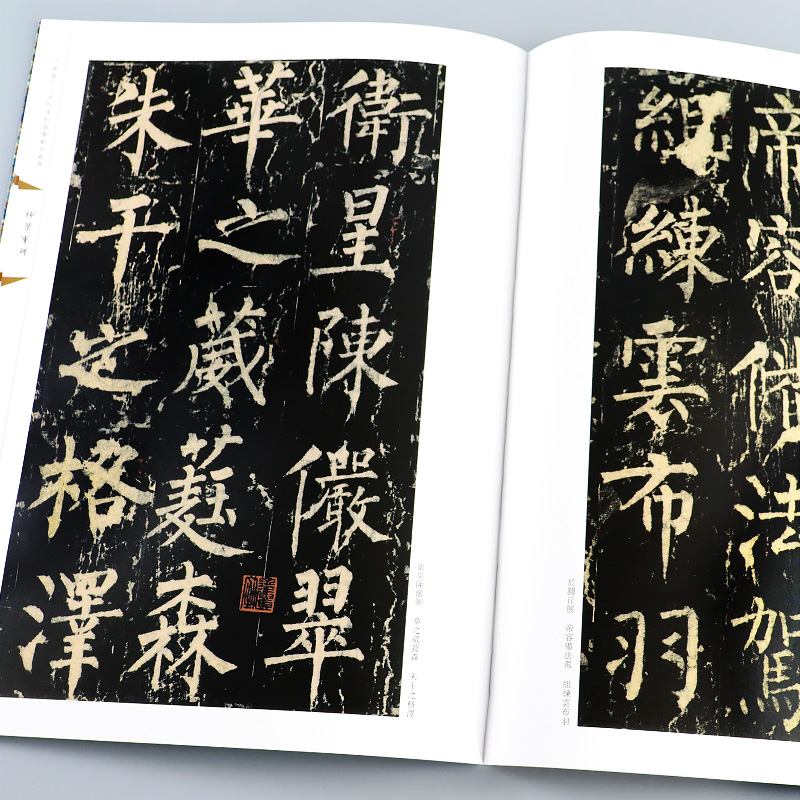 帝容備法駕
組練雲布羽
於圓丘展 帝容備法駕 組練雲布羽
衛星陳儼翠
華之葳蕤森
朱干之格澤
衛星陳儼翠 華之葳蕤森 朱干之格澤